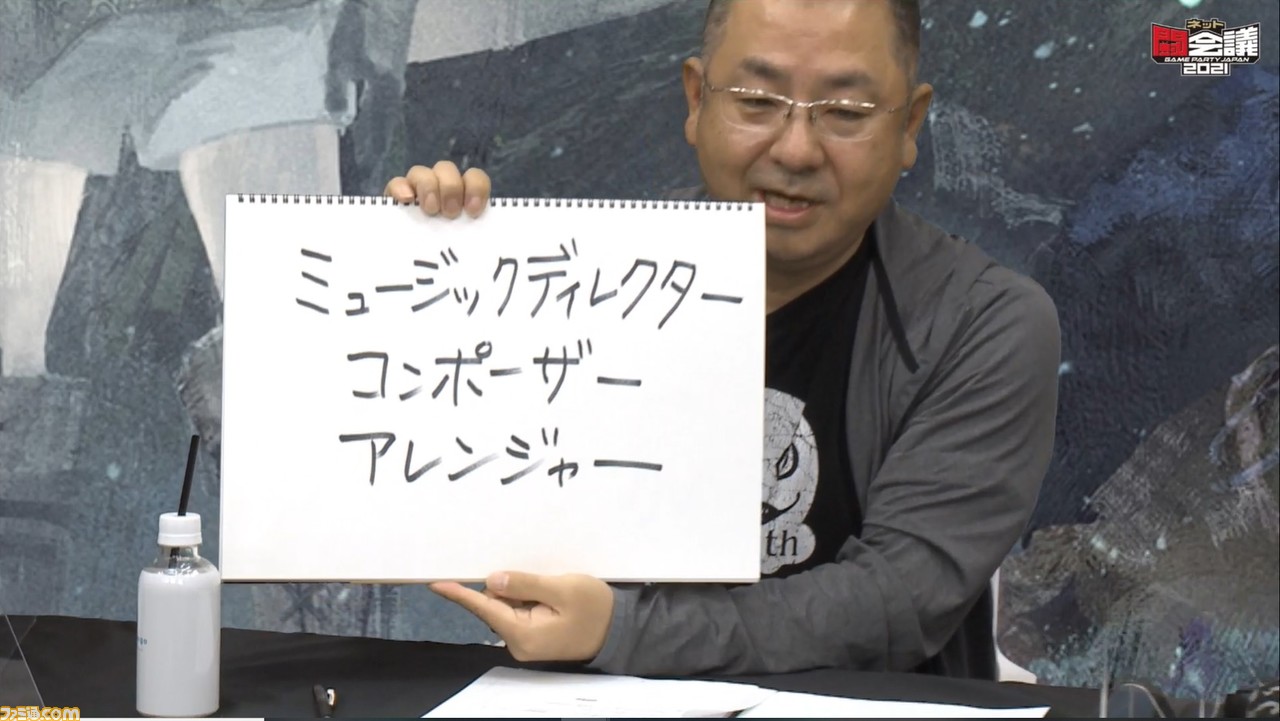 ネット
闘会議
GAME PARTY JAPAN
2021
ミュージックディレクター
コンポーザー
アレンジャー
th
ファミ通.com